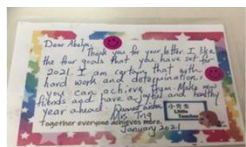 Dear Abelyn,
Thank you for your letter. I like
the four goals that you have set for
2021. I am certain that with
hard work and determination,
you can achieve them. Make new
friends and have a joyful and healthy
year ahead.
Mrs Ting
January 2021
Together everyone achieves more.
小先生
Little
Teacher